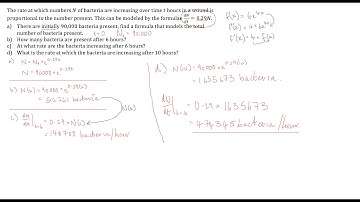 The rate at which numbers N of bacteria are increasing over time t hours in a wound is
proportional to the number present. This can be modeled by the formula dN/dt = 0.29N.
a) There are initially 90,000 bacteria present, find a formula that models the total
number of bacteria present. t=0 N₀ = 90,000
b) How many bacteria are present after 6 hours?
c) At what rate are the bacteria increasing after 6 hours?
d) What is the rate at which the bacteria are increasing after 10 hours?
a) N = N₀ e^0.29t
N = 90000 × e^0.29t
b) N(6) = 90000 × e^0.29(6)
bacteria
N(6)
c) dN/dt |t=6 = 0.29 × N(6)
bacteria/hour
d) N(10) = 90000 × e^0.29(10)
= 1635673 bacteria.
0.29 × 1635673
= 474345 bacteria/hour